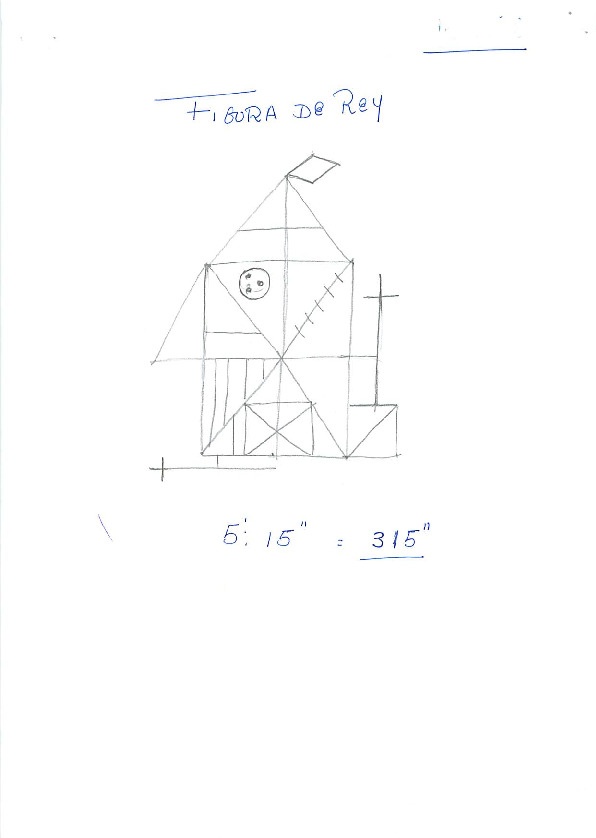 FIGURA DE Rey
5': 15" = 315"